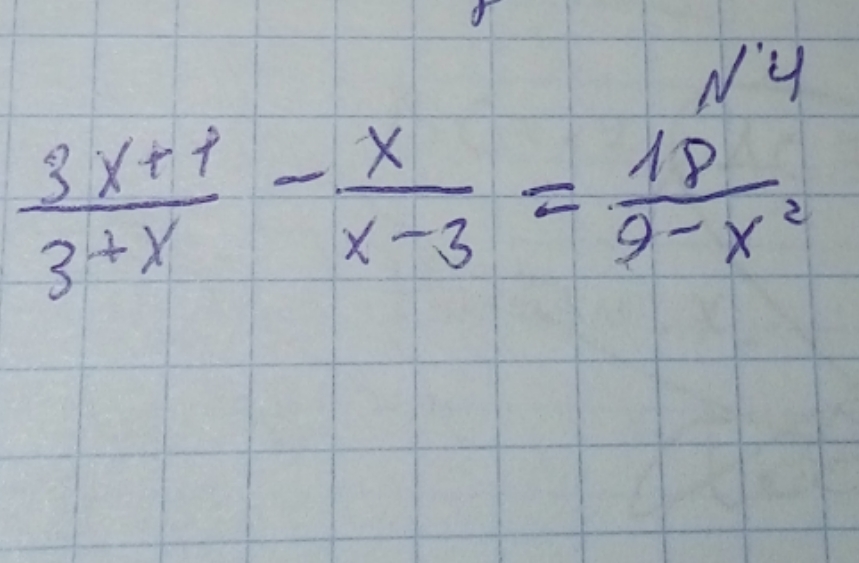 N 4
(3x+1)/(3+x) - x/(x-3) = 18/(9-x²)